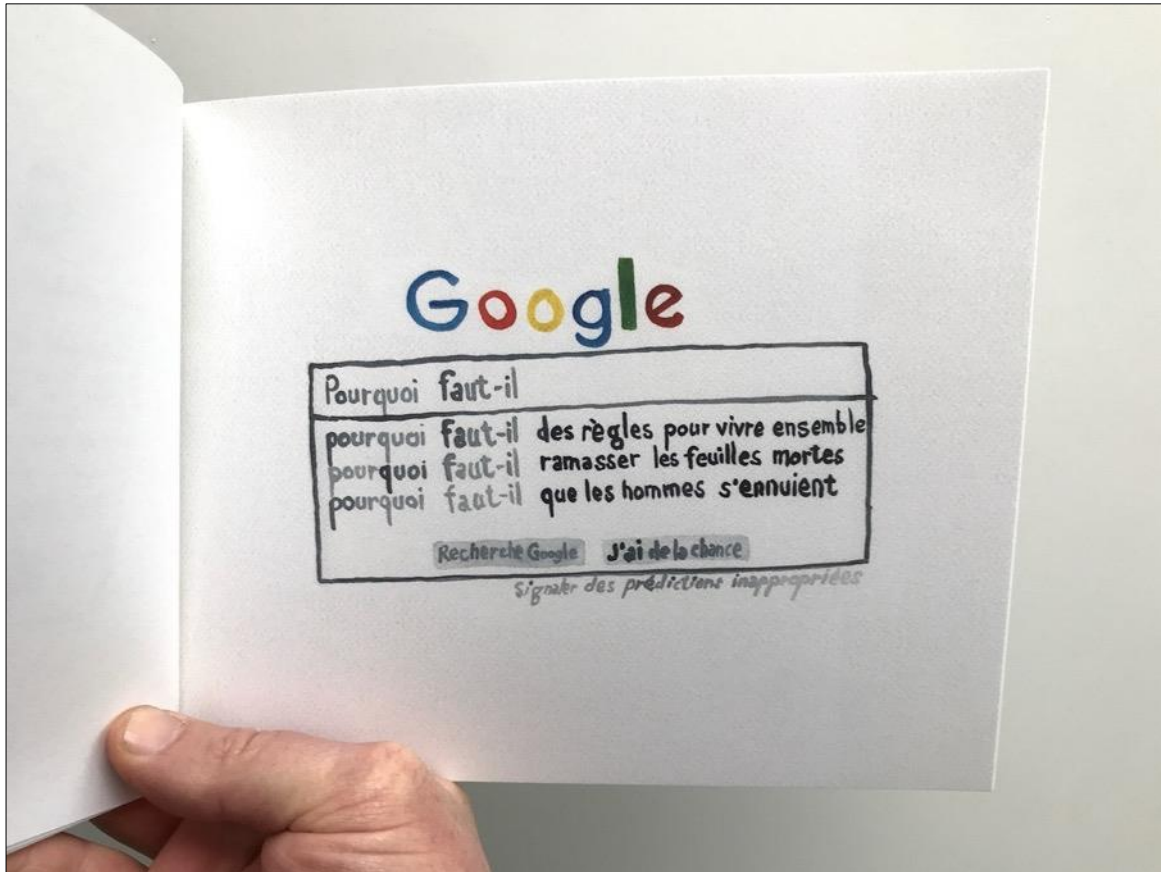 Google
Pourquoi faut-il
pourquoi faut-il des règles pour vivre ensemble
pourquoi faut-il ramasser les feuilles mortes
pourquoi faut-il que les hommes s'ennuient
Recherche Google J'ai de la chance
Signaler des prédictions inappropriées